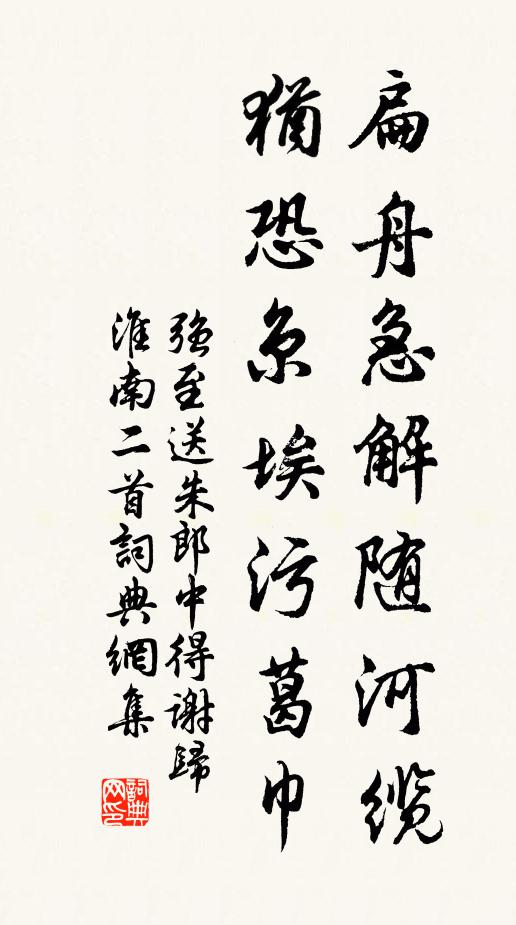 扁舟急解随河缆
猶恐京埃污葛巾
強至送朱郎中得謝歸
淮南二首詞典網集
詞典网印